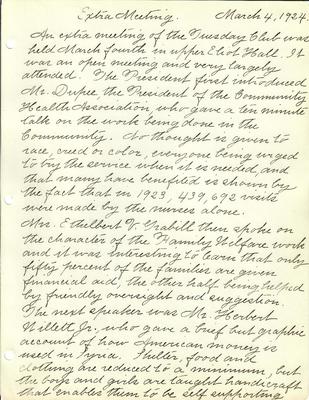 Extra Meeting. March 4, 1924.
An extra meeting of the Tuesday Club was
held March fourth in upper Eliot Hall. It
was an open meeting and very largely
attended. The President first introduced
Mr. Dupee the President of the Community
Health Association, who gave a ten minute
talk on the work being done in the
Community. No thought is given to
race, creed or color, everyone being urged
to buy the service when it is needed, and
that many have benefited is shown by
the fact that in 1923, 439,692 visits
were made by the nurses alone.
Mrs. Ethelbert V. Grabill then spoke on
the character of the Family Welfare work
and it was interesting to learn that only
fifty percent of the families are given
financial aid, the other half being helped
by friendly oversight and suggestion.
The next speaker was Mr. Herbert
Willett Jr., who gave a brief but graphic
account of how American money is
used in Syria. Shelter, food and
clothing are reduced to a minimum, but
the boys and girls are taught handicraft
that enables them to be self supporting